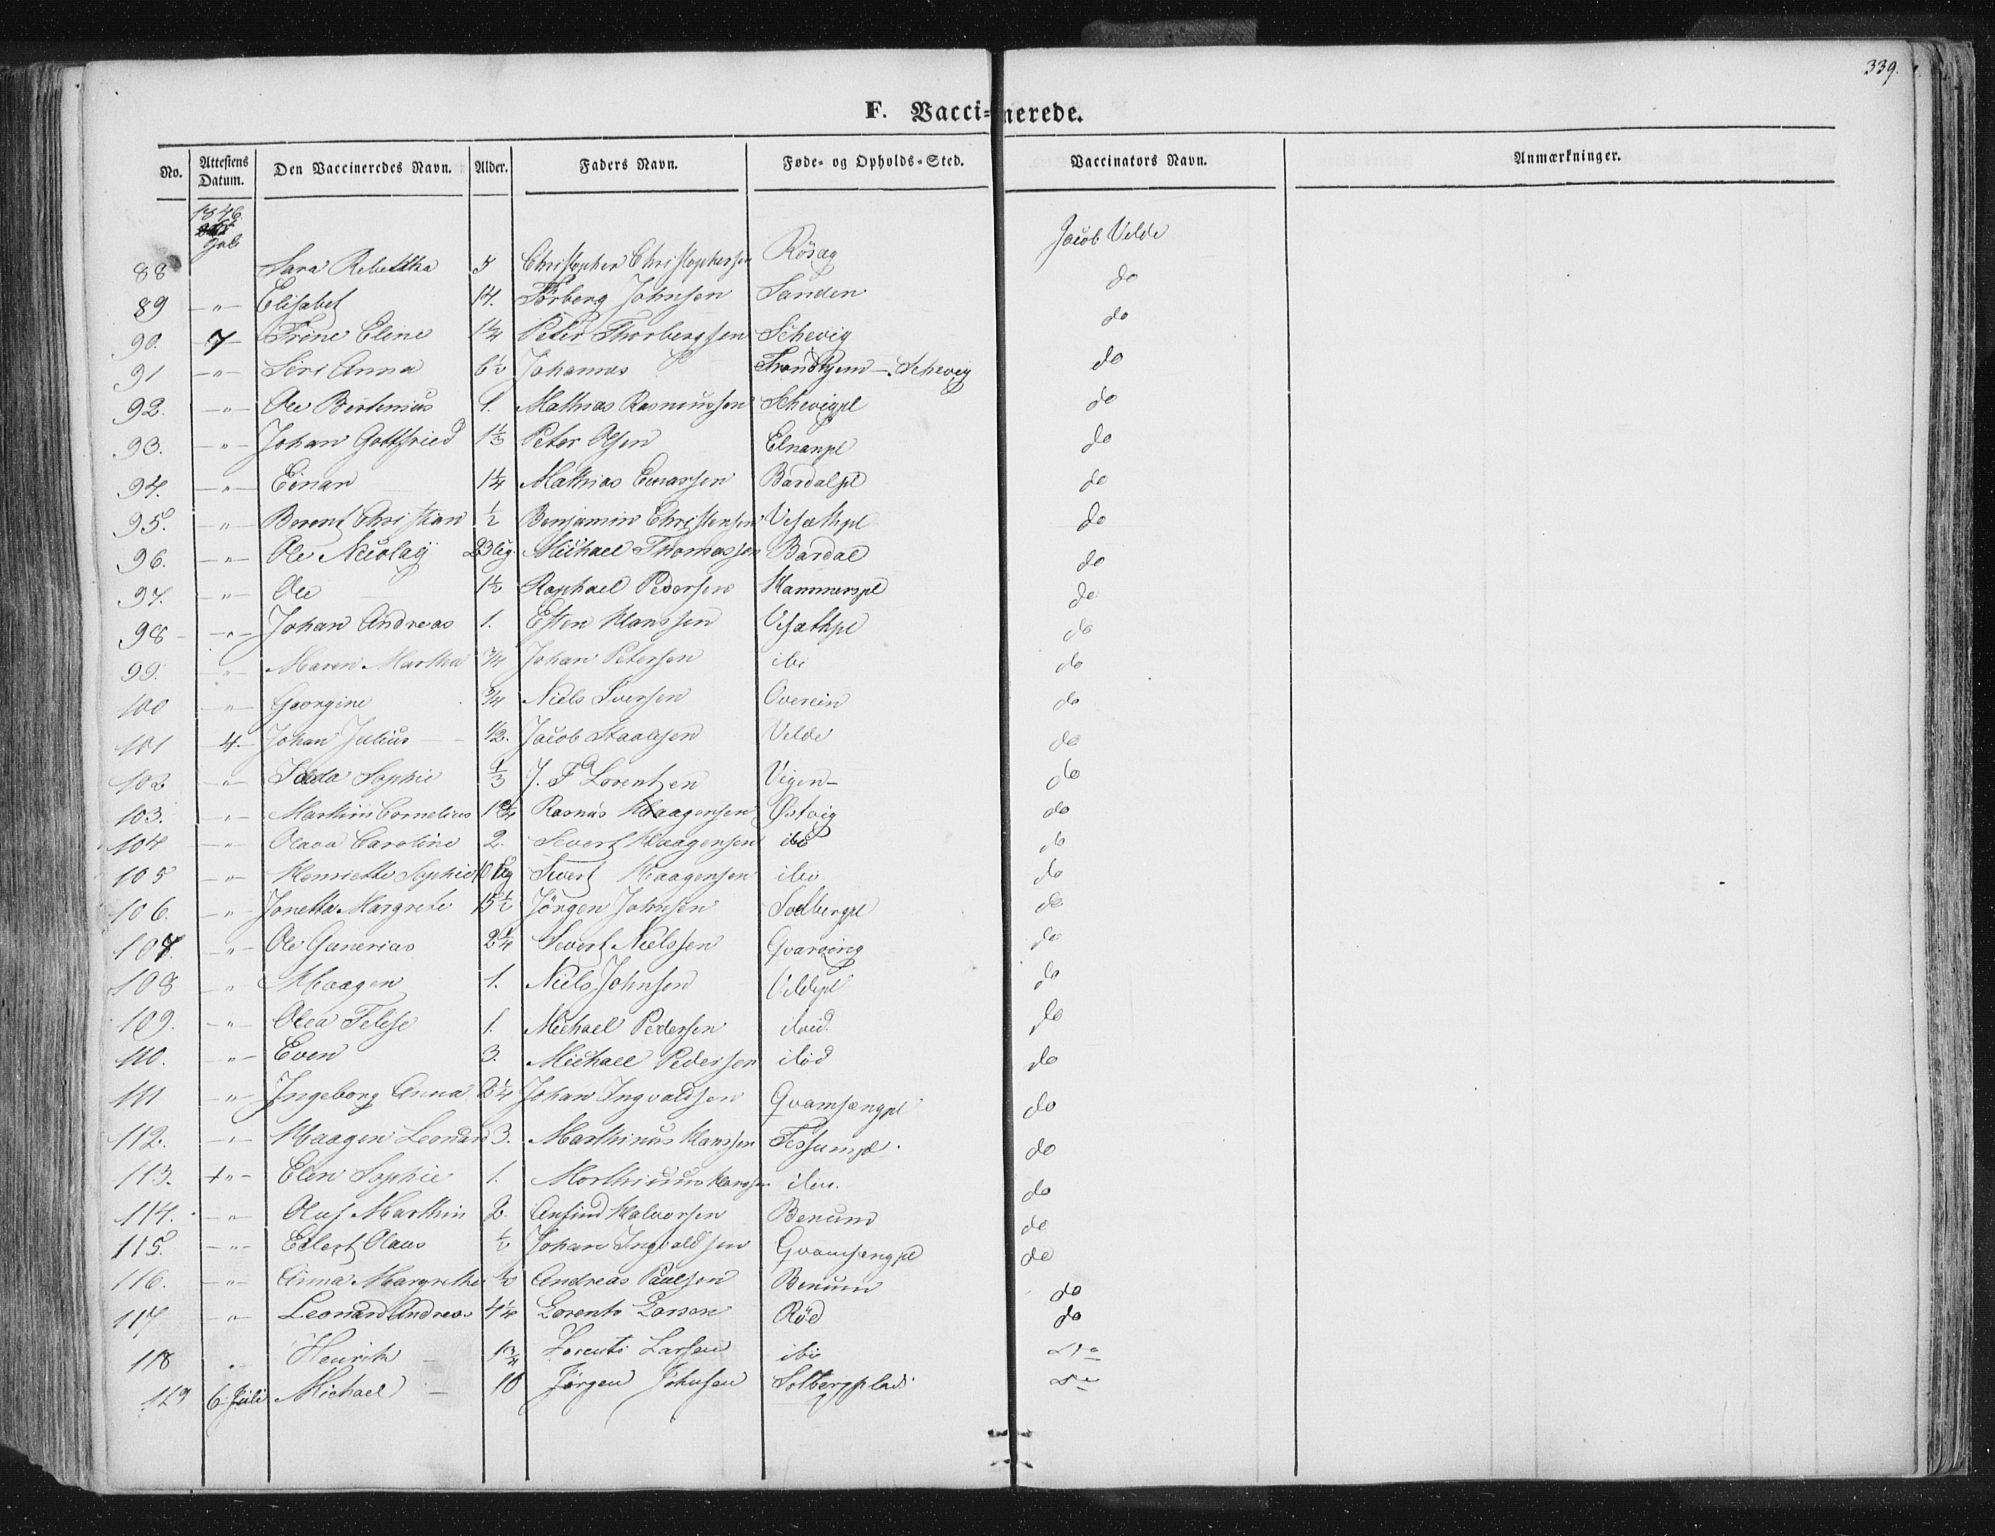 339.
F. Vaccinerede.
No. Attestens Datum. Den Vaccineredes Navn. Alder. Faders Navn. Føde- og Opholds-Sted. Vaccinators Navn. Anmærkninger.
1846
88 Sara Rebekka 5 Christopher Christophersen Røsæg Jacob Velde
89 -"- Elisabet 14. Torberg Johnsen Sanden do
90. 7 Trine Eline 1¼ Peter Thorbergsen Schevig do
91 -"- Siri Anna 6½ Johannes Trondhjem - Schevig do
92. -"- Ole Bertinius 1. Mathias Rasmussen Schevigpl do
93. -"- Johan Gottfried 1⅓ Peter Olsen Elnanpl do
94. -"- Einar 1¼ Mathias Einarsen Bardalpl do
95. " Berent Christian ½ Benjamin Christensen Vesæthpl do
96. -"- Ole Nicolay 23 Ug. Michael Thomassen Bardal do
97. -"- Ole 1½ Raphael Pedersen Hammerspl do
98 -"- Johan Andreas 1. Esten Hanssen Vesæthpl do
99. -"- Maren Martha ¾ Johan Petersen ibi do
100 -"- Georgine ¾ Niels Iversen Overein do
101 4. Johan Julius 1/2. Jacob Staalesen Velde do
102 " Sophie ⅓ J. F. Lorentzen Vigen- do
103. -"- Marthin Cornelius Rasmus Haagensen Østvig do
104 " Olava Caroline 2. Sivert Haagensen ibi do
105 " Henriette Sophie 10 Ug Sivert Haagensen ibi do
106. -"- Jonetta Margrete 15½ Jørgen Johnsen Solbergpl do
107. -"- Ole Ganerius 2¼ Sivert Nielssen Gvarving do
108 " Haagen 1. Niels Johnsen Veldepl do
109. -"- Olea Felese 1. Michael Pedersen ibid. do
110. -"- Even 3. Michael Pedersen ibid do
111 -"- Ingeborg Anna 2¼ Johan Ingvaldsen Gvamsængpl do
112. -"- Haagen Leonard 3. Marthinus Hanssen Tessumpl. do
113. -"- Elen Sophie 1. Morthinus Hanssen ibi. do
114. -"- Oluf Marthin 2. Anfind Halvorsen Benum do
115. -"- Eilert Olaus ½ Johan Ingvaldsen Gvamsængpl do
116. -"- Anna Margrethe ½ Andreas Paulsen Benum do
117 -"- Leonard Andreas 4¼ Lorents Larsen Rød do
118 " Henrik 1¾ Lorents Larsen ibi do
119 6 Juli Michael 10 Jørgen Johnsen Solbergplads do